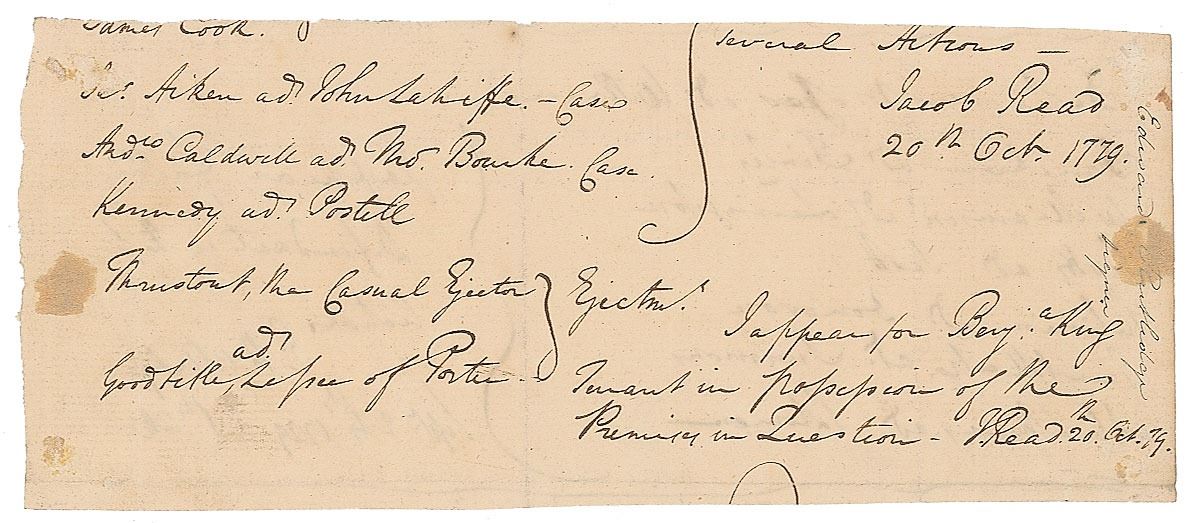 James Cook.
Jas. Aiken ads. John Lahiffe. – Case
Andrew Caldwell ads. Thos. Bourke. Case.
Kennedy ads. Postell
Thrustout, the Casual Ejector
ads.
Goodtitle, Lessee of Porter –
Several Actions –
Jacob Read
20th Oct. 1779.
Ejectmt.
I appear for Benj.a King
Tenant in possession of the
Premises in Question – J. Read. 20th. Oct. 79.
Edward Rutledge
signer